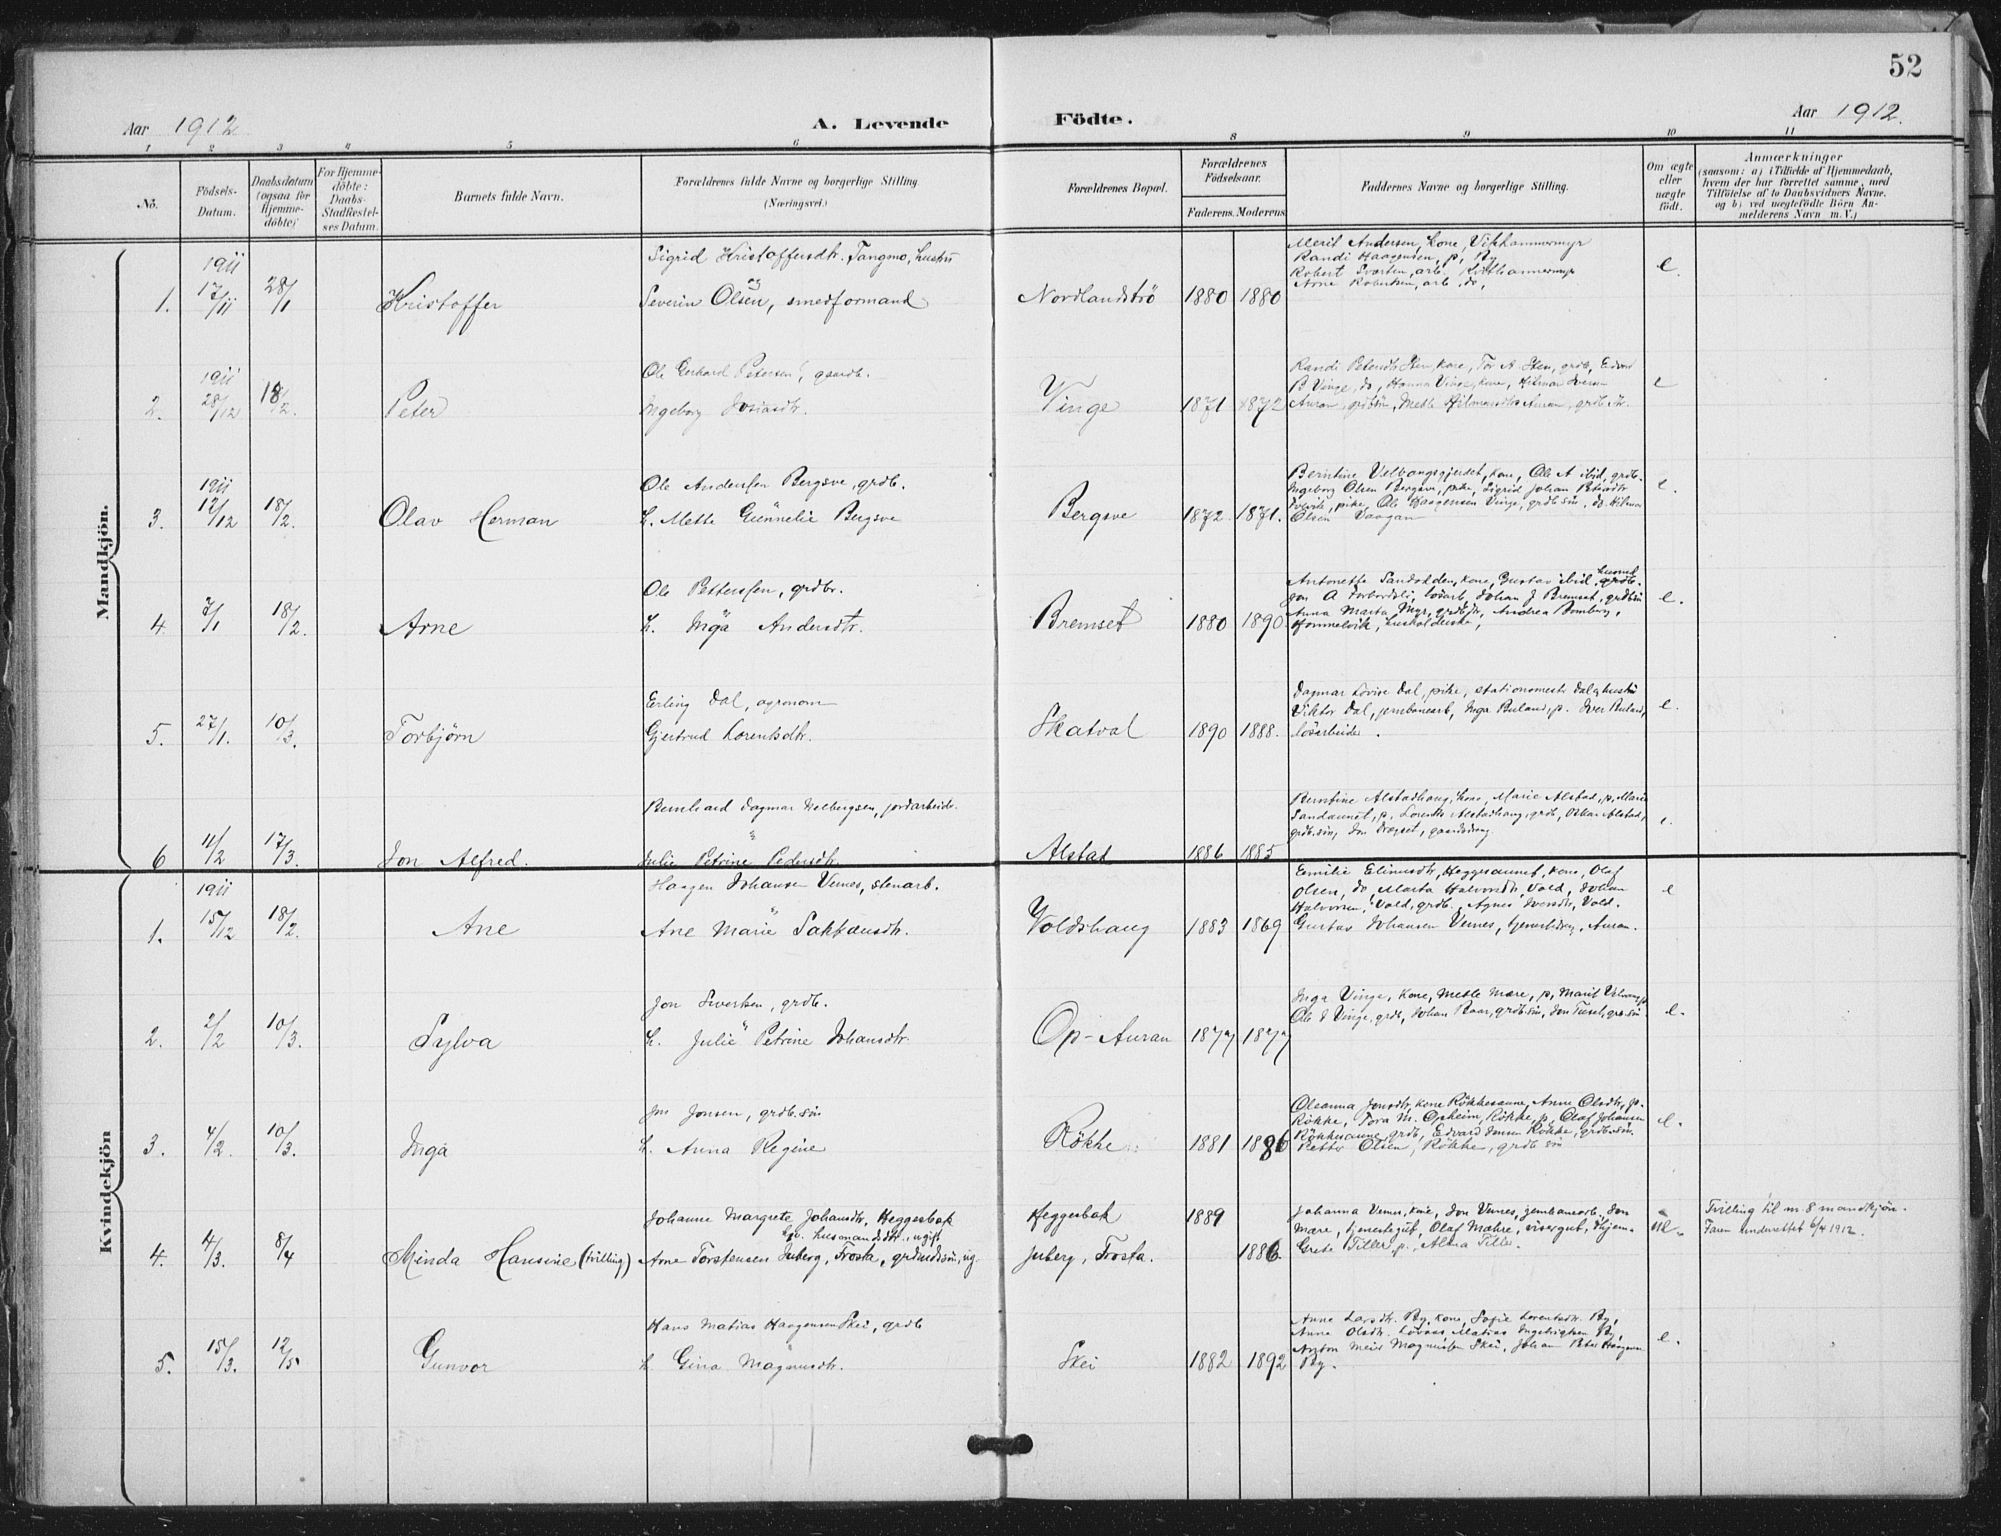 52
Aar 1912
A. Levende Födte.
Aar 1912.
1 2 3 4 5 6 8 9 10 11
No.
Födsels-Datum.
Daabsdatum (ogsaa for Hjemme-döbte)
For Hjemme-döbte: Daabs-Stadfæstel-ses Datum.
Barnets fulde Navn.
Forældrenes fulde Navne og borgerlige Stilling.
(Næringsvei.)
Forældrenes Bopæl.
Forældrenes Födselsaar.
Faderens. Moderens
Faddernes Navne og borgerlige Stilling.
Om ægte eller uægte födt.
Anmærkninger
(saasom: a) i Tilfælde af Hjemmedaab,
hvem der har forrettet samme, med
Tilföielse af to Daabsvidners Navne,
og b) ved uægtefödte Börn An-
melderens Navn m. V.)
Mandkjön.
1. 1911 17/11 28/1 Kristoffer
Sigrid Kristoffersdtr. Tangmo, hustru
og
Severin Olsen, smedformand
Nordlandströ 1880 1880
Merit Andersen, kone,
Randi Haagensen, p, By
Robert Svartsen, arb.
Arne Robertsen, arb, do,
e.
2. 1911 28/12 18/2. Peter
Ole Gerhard Petersen, gaardb.
Ingeborg Josiasdtr.
Vinge 1871 1872
Randi Petersdtr Sten, kone, Tor A. Sten, grdb, Edvard
P Vinge, do, Hanna Vinge, kone, Hilmar Iversen
Auran, grdbsön, Mette Hilmarsdtr Auran, grdb.dtr.
e
3. 1911 17/12 18/2. Olav Herman
Ole Andersen Bergsve, grdb.
h. Mette Gunnelie Bergsve
Bergsve 1872. 1871.
Berntine Velvangsgjerdet, kone, Ole A ibid, grdb.
Ingeborg Olsen Bergsve, pike, Sigrid Johan Petersdtr
pike, Ole Haagensen Vinge, grdb.sön, do. Hilmar
Olsen Vaagan
e.
4. 7/1 18/2. Arne
Ole Pettersen, grdbr.
h. Inga Andersdtr.
Bremset 1880 1890
Antonette Sandodden, kone, Gustav ibid, husmd
Jon A Forbordsli, lösarb, Johan J Bremset, grdbsön
Anna Marta Myr, grdb.dtr, Andrea Bomberg,
Hommelvik, husholderske,
e.
5. 27/1. 10/3. Torbjörn
Erling Dal, agronom
Gjertrud Lorentsdtr.
Skatval 1890 1888.
Dagmar Lovise Dal, pike, stationsmester Dal & hustru
Viktor Dal, jernbanearb, Inga Buland, p. Iver Buland,
lösarbeider.
e.
6 11/2 17/3. Jon Alfred.
Bernhard Dagmar Melbergsen, jordarbeider.
Julie Petrine Pedersdtr.
Alstad 1886 1885
Berntine Alstadhaug, kone, Marie Alstad, p, Marie
Sandaunet, p, Lorents Alstadhaug, grdb, Oskar Alstad,
grdb.sön, Jon Dragset, gaardsdreng.
e.
Kvindekjön
1. 1911 15/12 18/2. Ane
Haagen Johansen Vernes, stenarb.
Ane Marie
Voldshaug 1883 1869
Emilie Elinusdtr, Heggesaunet, kone, Olaf
Olsen, do, Marta Halvorsdtr, Vold, Johan
Halvorsen, Vold, grdb., Agnes Iversdtr, Vold.
Gustav Johansen Vernes, tjenestedreng, Auran.
e
2. 2/2 10/3. Sylva
Jon Sivertsen, grdb.
h. Julie Petrine Johansdtr.
Op-Auran 1877 1877
Inga Vinge, kone, Mette Mære, p, Marit
Ole E Vinge, grdb, Johan Raar, grdb.sön, Jon
e.
3. 4/2. 10/3. Inga
Jon Jonsen, grdb.sön
h. Anna Regine
Rökke 1881 1886
Oleanna Jonsdtr, kone Rökkesaune, Anne Olsdtr, p.
Rökke, Tora M. Opheim, Rökke, p, Olaf Johansen
Rökkesaune, grdb, Edvard Jonsen Rökke, grdb.sön.
Petter Olsen, Rökke, grdb sön
e.
4. 4/3. 8/4 Minda Hansine (tvilling)
Johanne Margrete Johansdtr, Heggesbak
husmandsdtr., ugift
Arne Torstensen Juberg, Frosta, grdmdssön, ug.
Heggesbak 1889
Juberg, Frosta. 1886
Johanna Vernes, kone, Jon Vernes, jernbanearb, Jon
Mære, tjenestegut, Olaf Mæhre, visergut,
Grete Tiller, p, Alma Tiller.
u.
Tvilling til m. 8 mandkjön.
Faren underrettet 6/4 1912.
5. 15/3. 12/5 Gunvor
Hans Matias Haagensen Skei, grdb
h Gina Magnusdtr.
Skei 1882 1892
Anne Larsdtr. By, kone, Sofie Lorentsdtr. By,
Anna Olsdtr. Lövaas, Matias Ingebrigtsen By,
Anton Meier Magnussen Skei, Johan Peter Haagensen
By.
e.